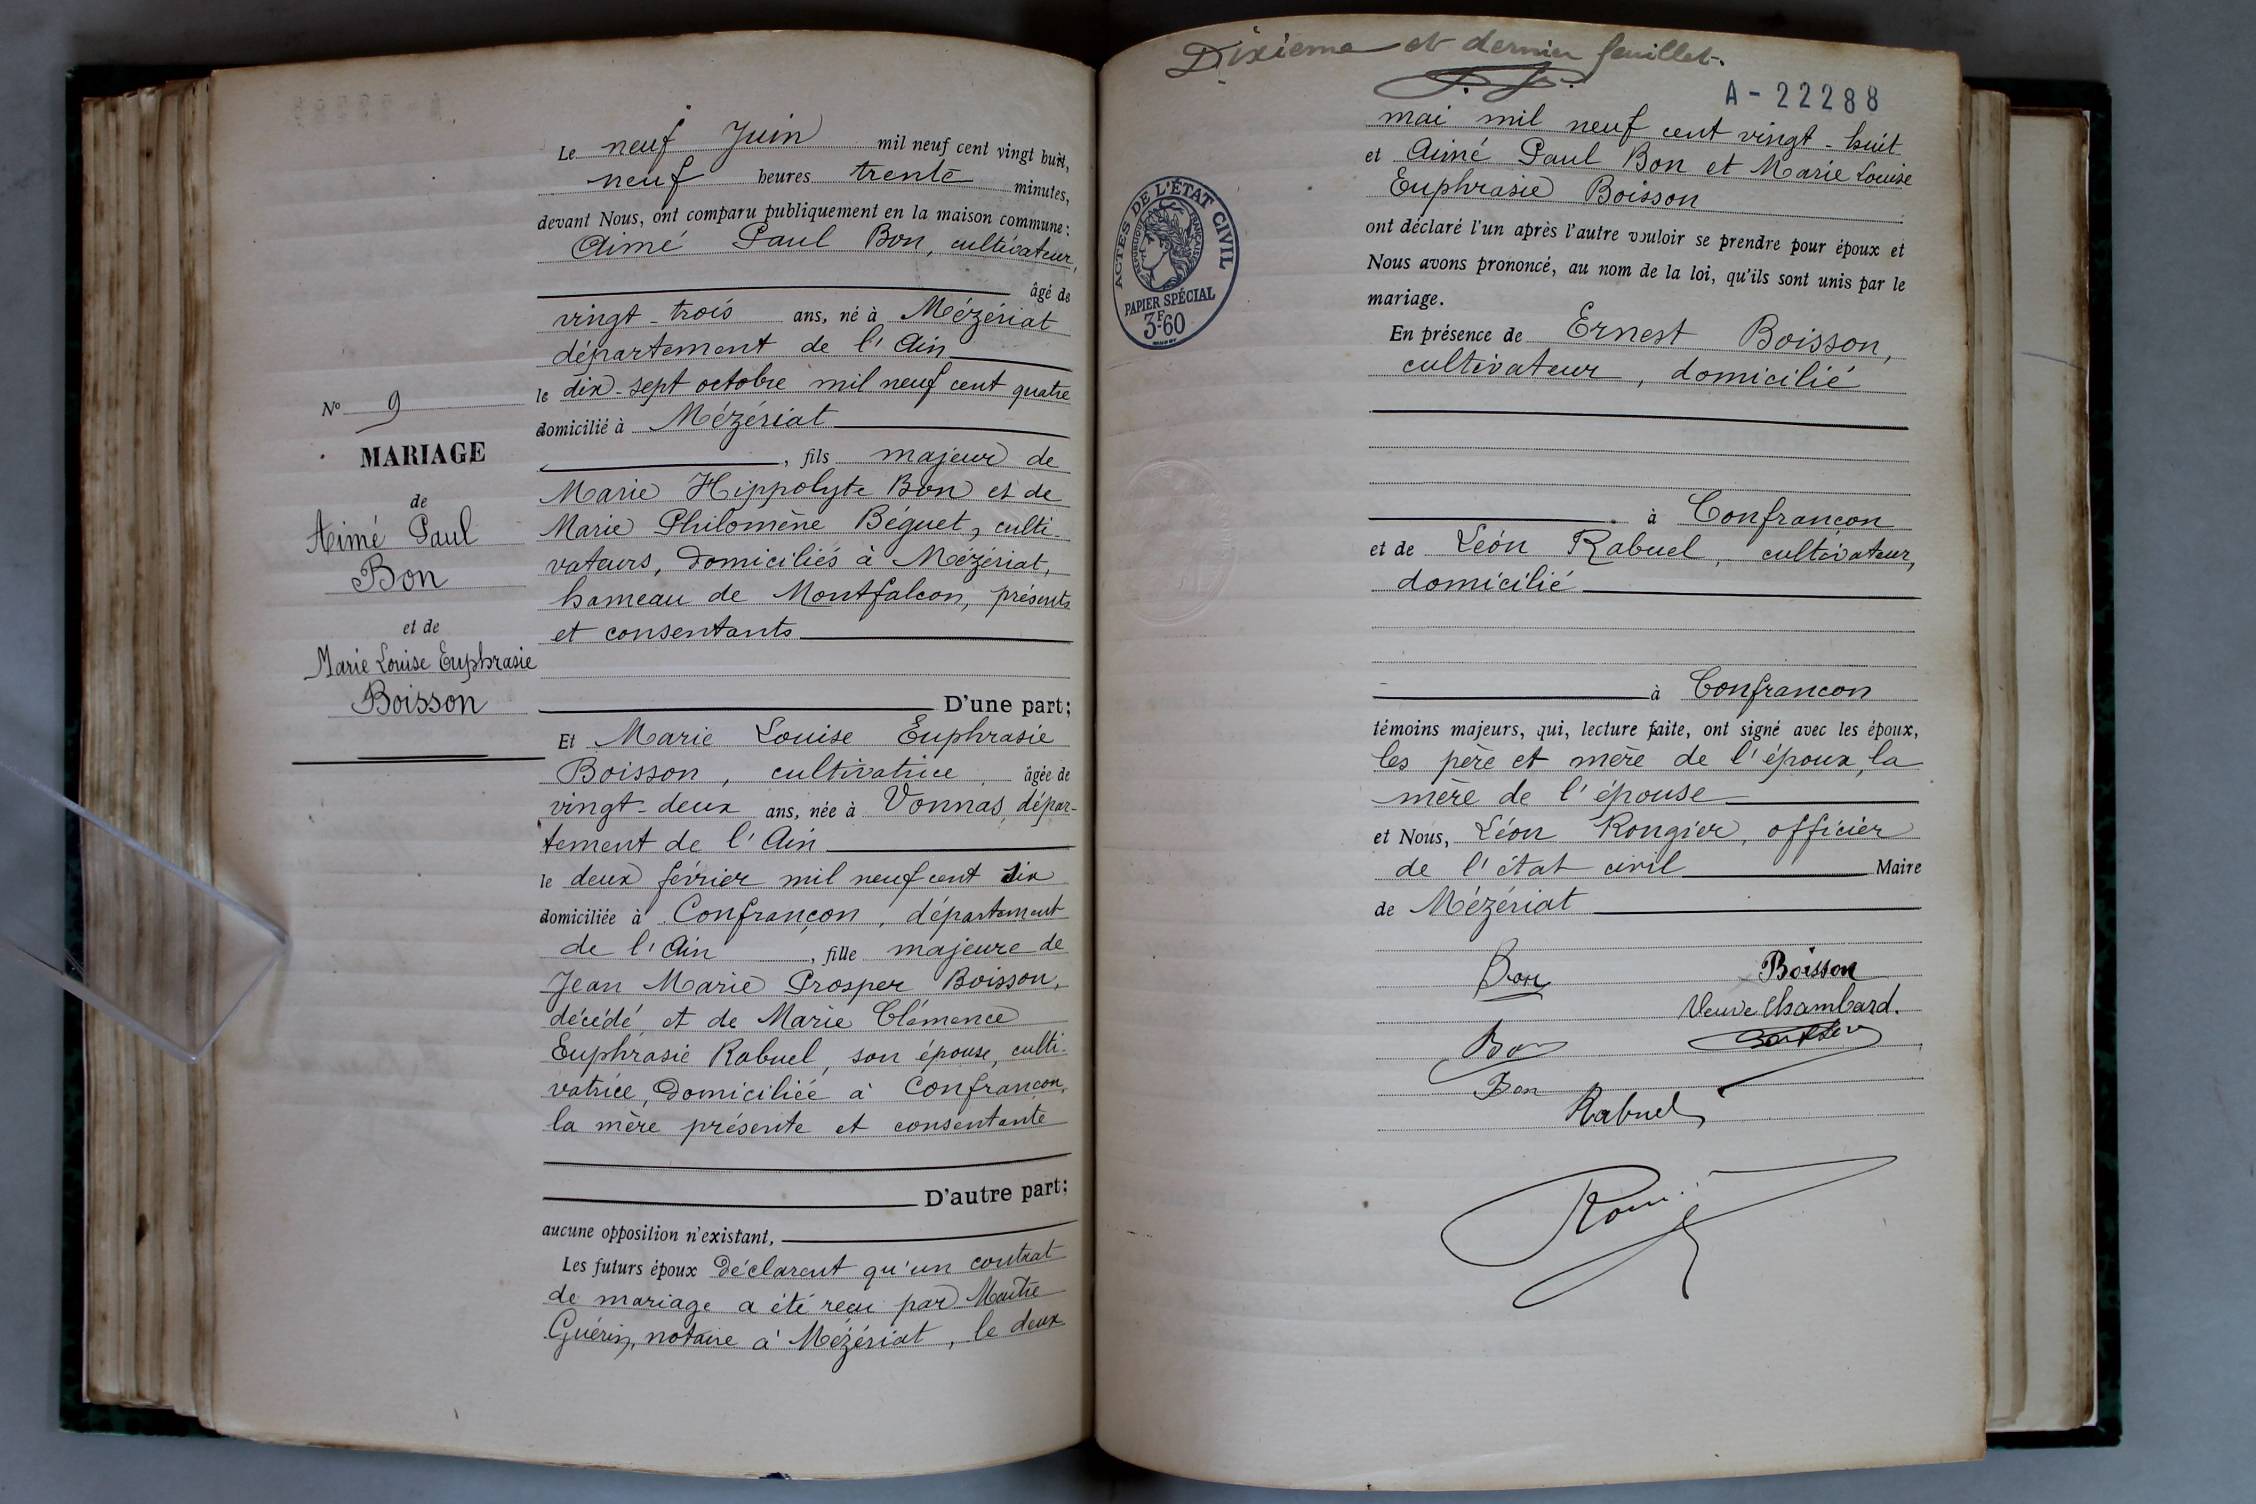 Le neuf Juin mil neuf cent vingt huit,
neuf heures trente minutes,
devant Nous, ont comparu publiquement en la maison commune :
Aimé Paul Bon, cultivateur,
âgé de
vingt-trois ans, né à Mézériat
département de l'Ain
le dix-sept octobre mil neuf cent quatre
domicilié à Mézériat
, fils majeur de
Marie Hippolyte Bon et de
Marie Philomène Béguet, culti-
vateurs, domiciliés à Mézériat,
hameau de Montfalcon, présents
et consentants
D'une part;
Et Marie Louise Euphrasie
Boisson, cultivatrice âgée de
vingt-deux ans, née à Vonnas, dépar-
tement de l'Ain
le deux février mil neuf cent six
domiciliée à Confrançon, département
de l'Ain, fille majeure de
Jean Marie Prosper Boisson,
décédé et de Marie Clémence
Euphrasie Rabuel, son épouse, culti-
vatrice, domiciliée à Confrançon,
la mère présente et consentante
D'autre part;
aucune opposition n'existant,
Les futurs époux déclarent qu'un contrat
de mariage a été reçu par Maître
Guérin, notaire à Mézériat, le deux
No 9
MARIAGE
de
Aimé Paul
Bon
et de
Marie Louise Euphrasie
Boisson
Dixième et dernier feuillet.
A-22288
mai mil neuf cent vingt-huit
et Aimé Paul Bon et Marie Louise
Euphrasie Boisson
ont déclaré l'un après l'autre vouloir se prendre pour époux et
Nous avons prononcé, au nom de la loi, qu'ils sont unis par le
mariage.
En présence de Ernest Boisson,
cultivateur, domicilié
à Confrançon
et de Léon Rabuel, cultivateur,
domicilié
à Confrancon
témoins majeurs, qui, lecture faite, ont signé avec les époux,
les père et mère de l'époux, la
mère de l'épouse
et Nous, Léon Rongier, officier
de l'état civil Maire
de Mézériat
Bon Boisson
Veuve Chambard.
Bon Boisson
Bon
Rabuel
ACTES DE L'ÉTAT CIVIL
RÉPUBLIQUE FRANÇAISE
PAPIER SPÉCIAL
3F60